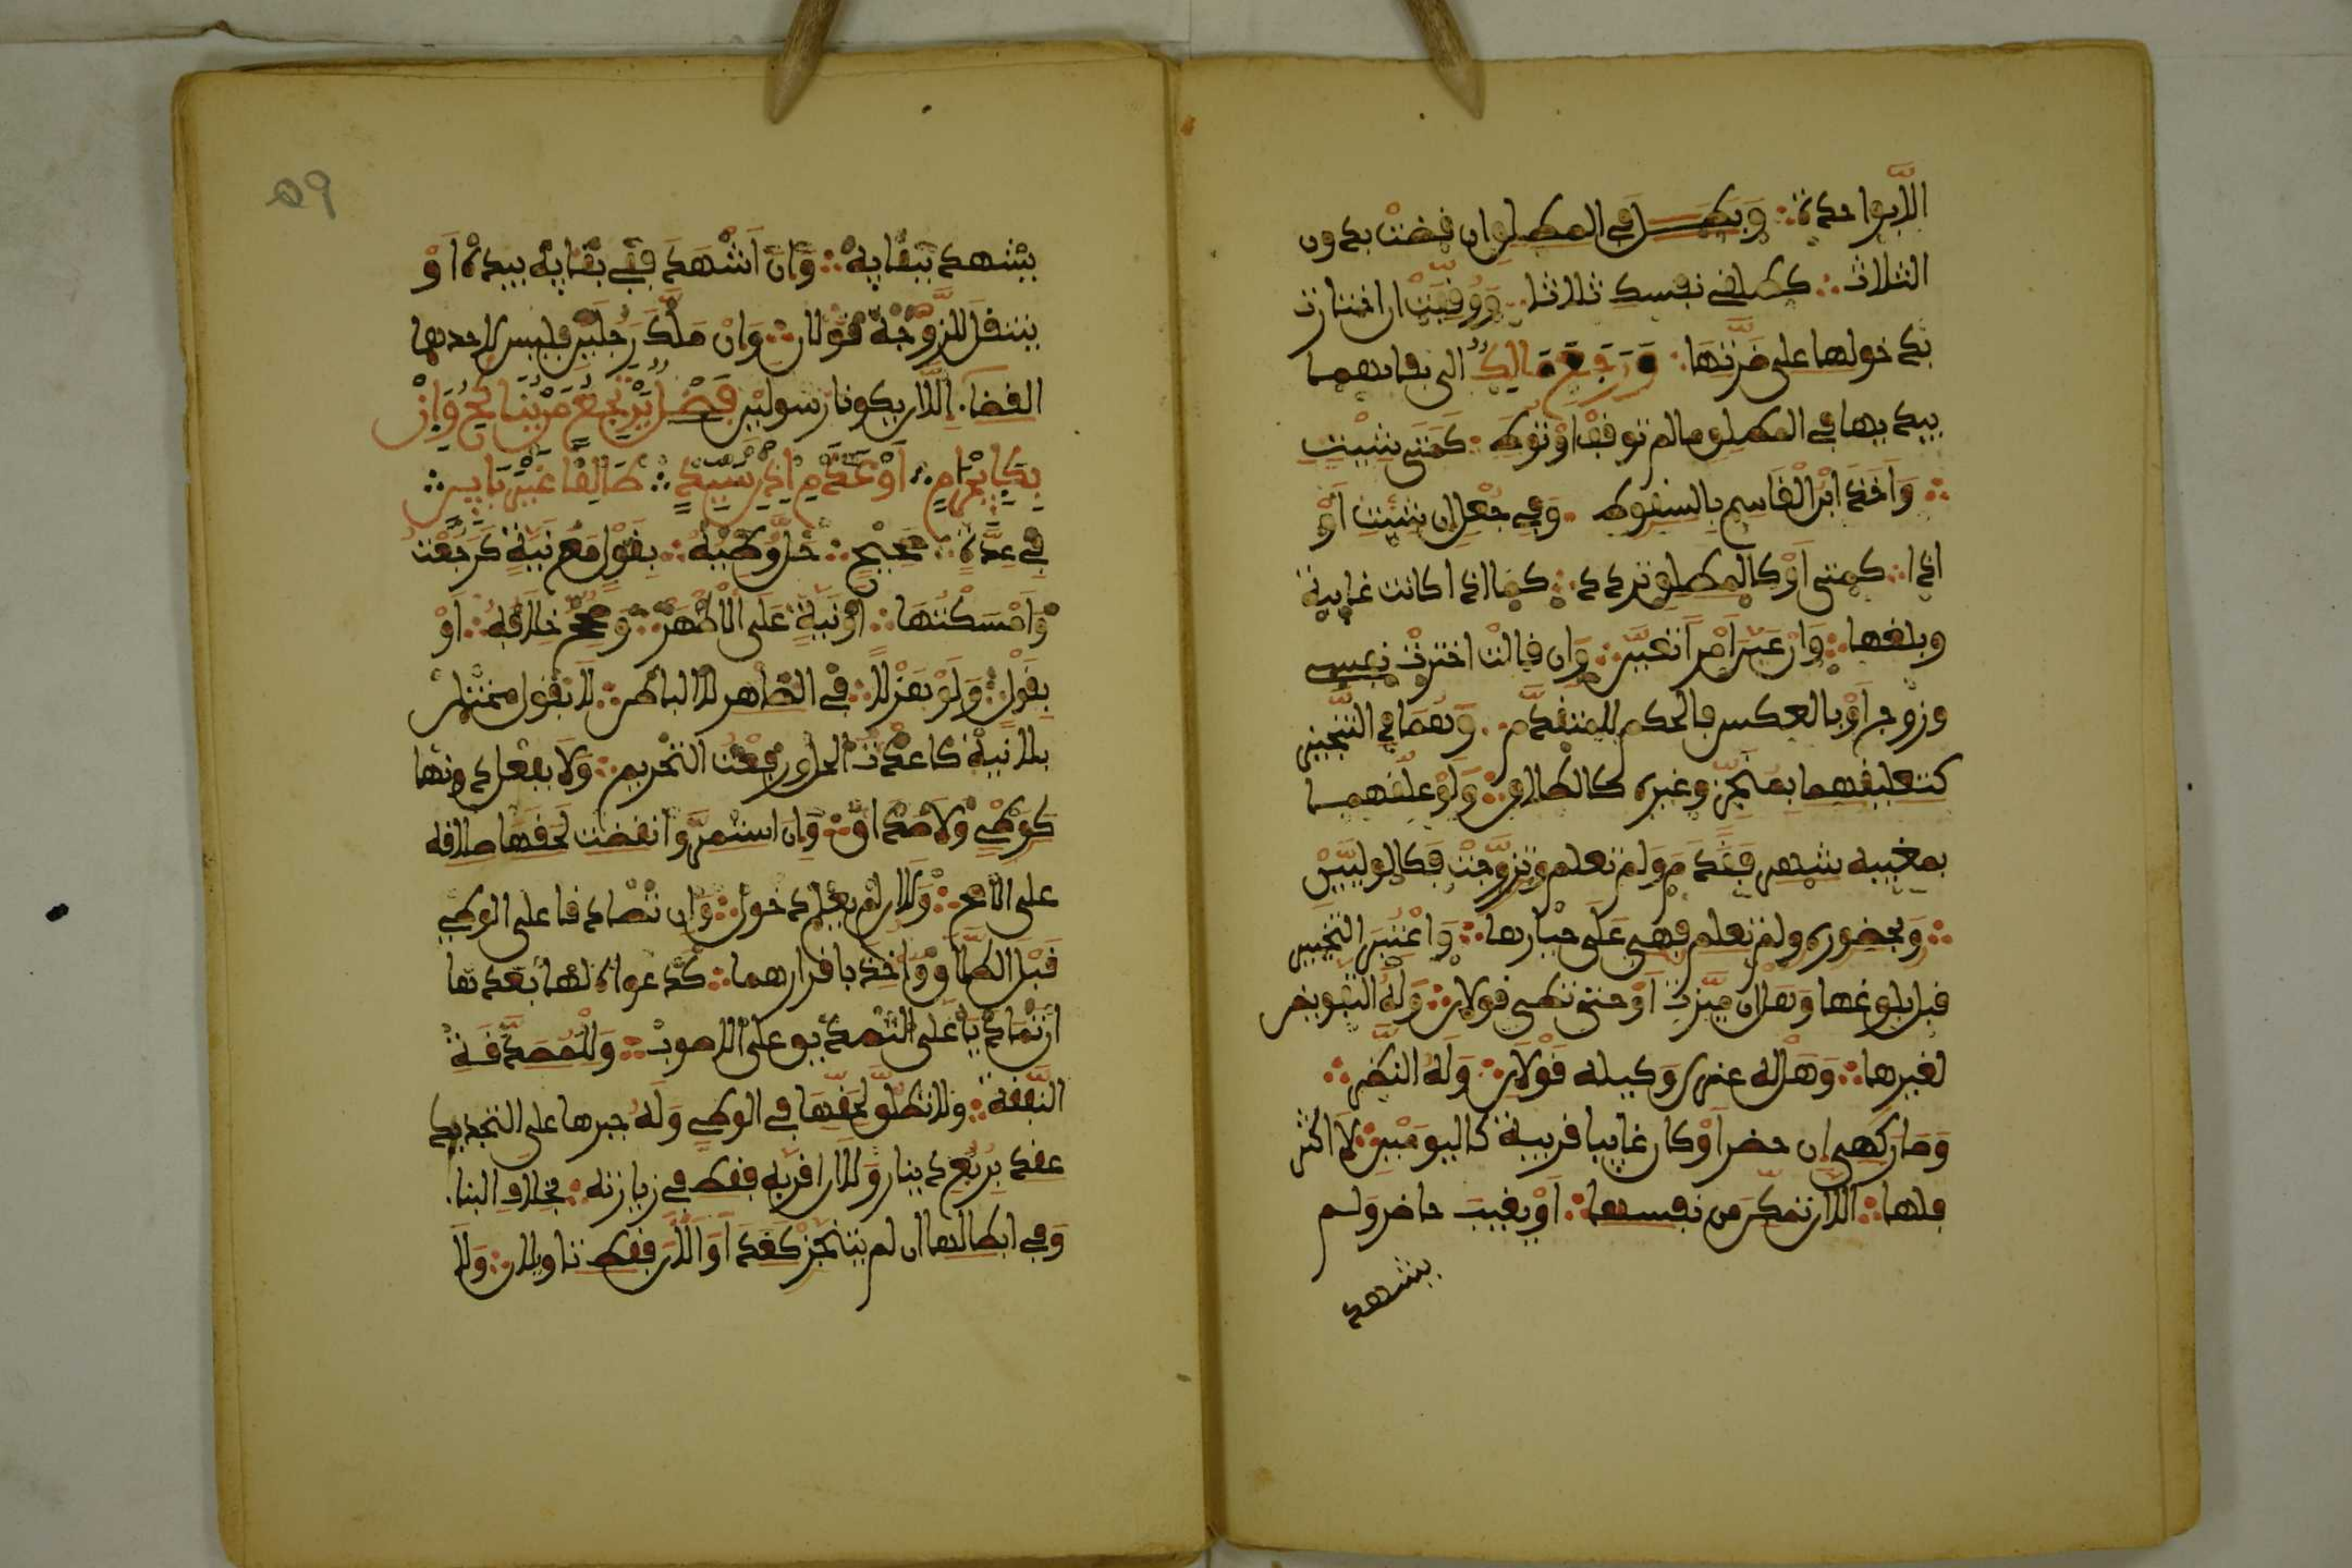 إلا بواحدة وبطل في المطلق إن قضت بدون
الثلاث كطلقي نفسك ثلاثا ووقفت إن اختارت
بدخولها على ضرتها ورجع مالك إلى بقائهما
بيديها في المطلق ما لم توقف أو توطأ كمتى شئت
وأخذ ابن القاسم بالسقوط وفي جعل إن شئت أو
إذا كمتى أو كالمطلق تردد كما إذا كانت غائبة
وبلغها وإن عين أمرا تعين وإن قالت اخترت نفسي
وزوجي أو بالعكس فالحكم للمتقدم وهما في التنجيز
كتعليقهما بمنجز وغيره كالطلاق ولو علقهما
بمغيبه شهر فقدم ولم تعلم وتزوجت فكالوليين
وبحضوره ولم تعلم فهي على خيارها واعتبر التنجيز
قبل بلوغها وهل إن ميزت أو حتى توطأ قولان وله التفويض
لغيرها وهل له عزل وكيله قولان وله النظر
وصار كهي إن حضر أو كان غائبا قريبة كاليومين لا أكثر
فلها إلا أن تمكن من نفسها أو يغيب حاضر ولم
يشهد
٥٩
يشهد ببقائه وإن أشهد ففي بقائه بيده أو
ينتقل للزوجة قولان وإن ملك رجلين فليس لأحدهما
القضا إلا أن يكونا رسولين فصل يرتجع من ينكح وإن
بكإحرام أو عدم إذن سيد طالقا غير باين
في عدة صحيح حل وطئه بقول مع نية كرجعت
وأمسكتها أو نية على الأظهر وصحح خلافه أو
بقول ولو هزلا في الظاهر لا الباطن لا بقول محتمل
بلا نية كأعدت الحل ورفعت التحريم ولا بفعل دونها
كوطء ولا صداق وإن استمر وانقضت لحقها طلاقه
على الأصح ولا إن لم يعلم دخول وإن تصادقا على الوطء
قبل الطلاق وأخذا بإقرارهما كدعواه لها بعدها
إن تماديا على التصديق على الأصوب وللمصدقة
النفقة ولا تطلق لحقها في الوطء وله جبرها على التجديد
عقد بربع دينار ولا إن أقر به فقط في زيارته بخلاف البنا
وفي إبطالها إن لم تنجز كغد أو الآن فقط تأويلان ولا